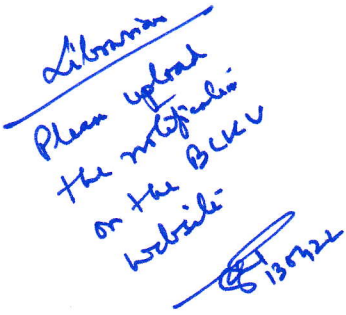 Librarian
Please upload
the notification
on the BCKV
website